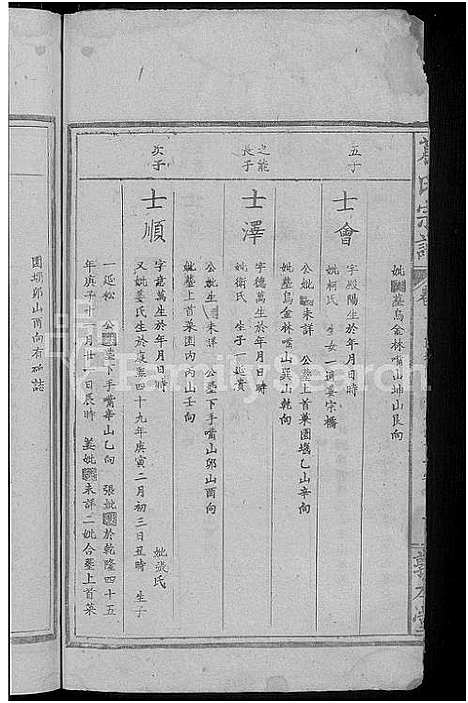 妣葬烏金林嘴山坤山艮向
五子
士會
字殿陽生於年月日時
妣柯氏 生女一適姜宗橋
公妣未詳 公葬上首菓園塆乙山辛向
妣葬烏金林嘴山巽山乾向
之能長子
士澤
字德萬生於年月日時
妣衛氏 生子一延貴
公妣生未詳 公葬下手嘴山卯山酉向
妣葬上首菜園內丙山壬向
次子
士順
字意萬生於年月日時 妣張氏
又妣姜氏生於康熙四十九年庚寅二月初三日丑時 生子
一延松 公葬下手嘴華山乙向 張妣於乾隆四十五
年庚子十一月廿日辰時 姜妣未詳二妣合葬上首菜
園塆卯山酉向有碑誌
氏宗譜
敦本堂
FamilySearch